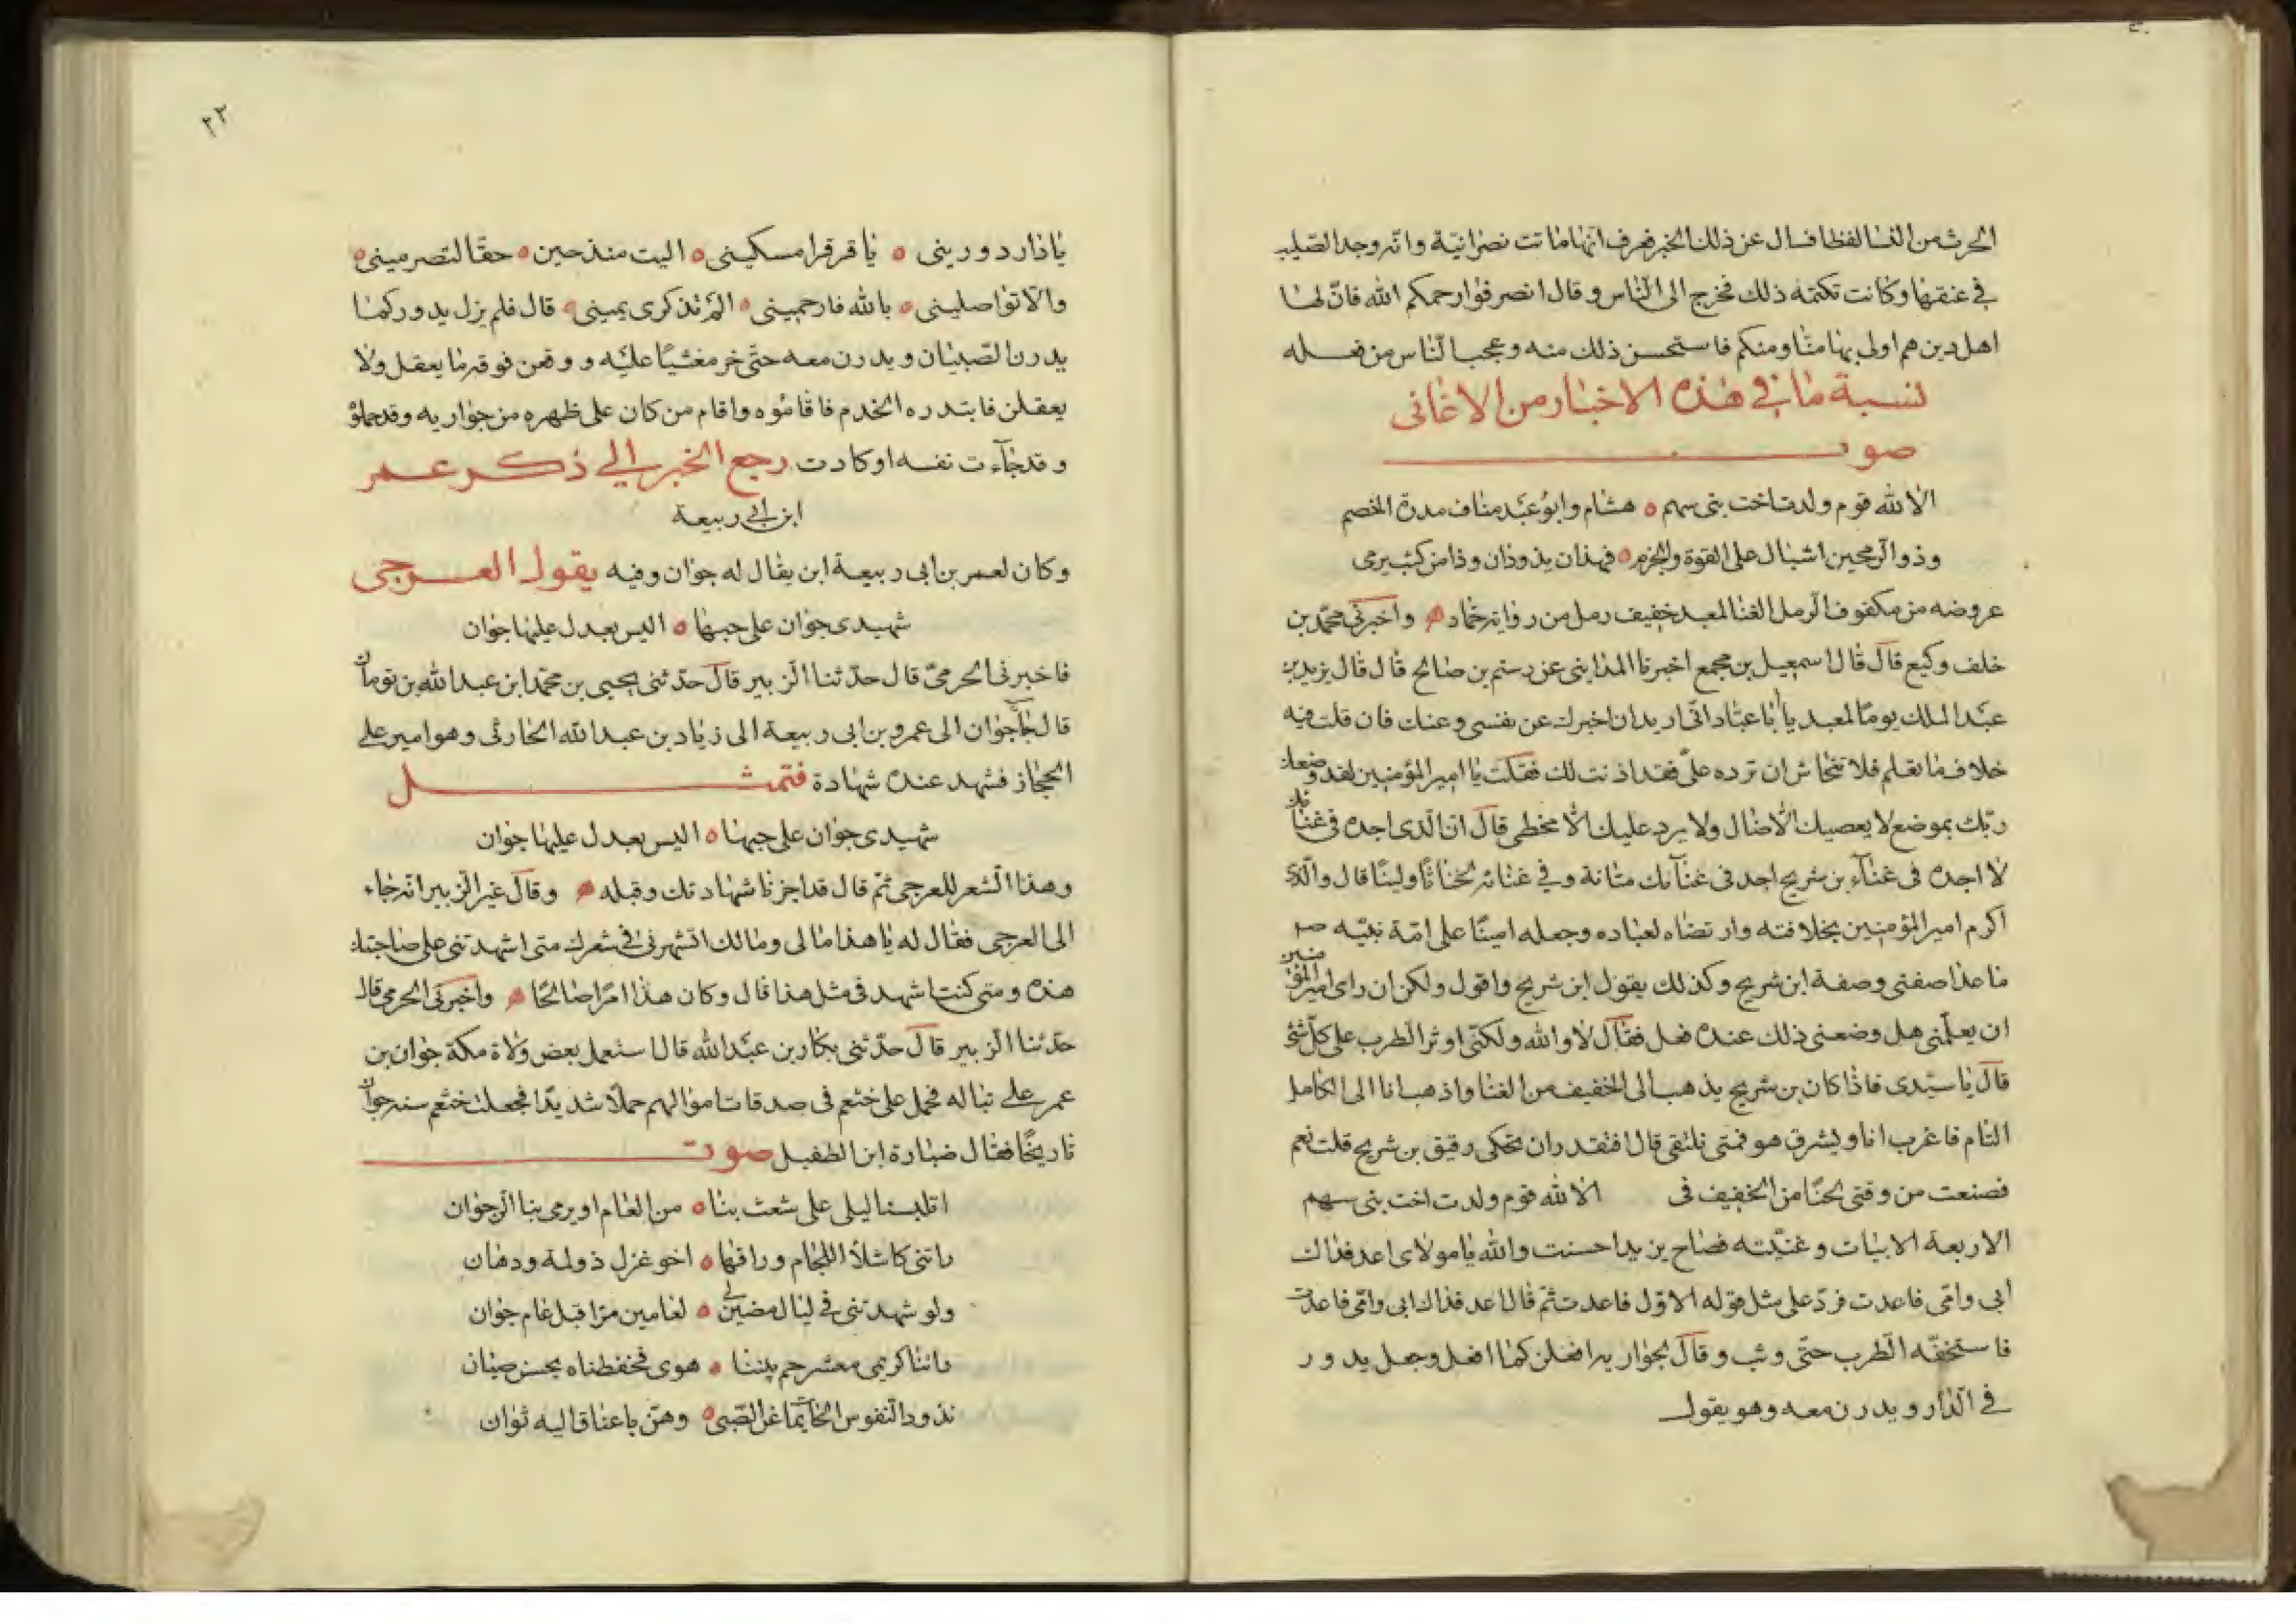 الحرث من النسا لفظا فسال عن ذلك الخبر فعرف انها ماتت نصرانية وانه وجد الصليب
في عنقها وكانت تكتمه ذلك فخرج الى الناس وقال انصرفوا رحمكم الله فان لها
اهل دين هم اولى بها منا ومنكم فاستحسن ذلك منه وعجب الناس من فعله
نسبة ما في هذه الاخبار من الاغانى
صوت
الا لله قوم ولدت اخت بنى سهم ه هشام وابو عبد مناف مدرة الخصم
وذو الرمحين اشبال على القوة والحزم ه فهذان يذودان وذا من كثب يرمى
عروضه من مكفوف الرمل الغنا لمعبد خفيف رمل من رواية حماد ه واخبرنى محمد بن
خلف وكيع قال قال اسمعيل بن مجمع اخبرنا المداينى عن رستم بن صالح قال قال يزيد بن
عبد الملك يوما لمعبد يا ابا عباد انى اريد ان اخبرك عن نفسى وعنك فان قلت فيه
خلاف ما تعلم فلا تتحاش ان ترده على فقد اذنت لك فقلت يا امير المؤمنين لقد وضعك
ربك بموضع لا يعصيك الا ضال ولا يرد عليك الا مخطى قال ان الذى اجده فى غنائك
لا اجده فى غناء بن شريح اجد فى غنآئك متانة وفى غنائه انخناثا ولينا قال والذى
اكرم امير المؤمنين بخلافته وارتضاه لعباده وجعله امينا على امة نبيه صم
ما عدا صفتى وصفة ابن شريح وكذلك يقول ابن شريح واقول ولكن ان راى امير المؤمنين
ان يعلمنى هل وضعنى ذلك عنده فعل فقال لا والله ولكنى اوثر الطرب على كل شئ
قال يا سيدى فاذا كان بن شريح يذهب الى الخفيف من الغنا واذهب انا الى الكامل
التام فاغرب انا ويشرق هو فمتى نلتقى قال افتقدر ان تحكى رقيق بن شريح قلت نعم
فصنعت من وقتى لحنا من الخفيف فى الا لله قوم ولدت اخت بنى سهم
الاربعة الابيات وغنيته فصاح يزيد احسنت والله يا مولاى اعد فداك
ابى وامى فاعدت فرد على مثل قوله الاول فاعدت ثم قال اعد فداك ابى وامى فاعدت
فاستخفه الطرب حتى وثب وقال لجواريه افعلن كما افعل وجعل يدور
في الدار ويدرن معه وهو يقول
٢٣
يا دار دورينى ه يا قرقر امسكينى ه اليت منذ حين ه حقا لتصرمينى ه
والا تواصلينى ه بالله فارحمينى ه الم تذكرى يمينى ه قال فلم يزل يدور كما
يدرن الصبيان ويدرن معه حتى خر مغشيا عليه ووقعن فوقه ما يعقل ولا
يعقلن فابتدره الخدم فاقاموه واقام من كان على ظهره من جواريه وقد حملوه
وقد جآءت نفسه او كادت رجع الخبر الي ذكر عمر
ابن ابي ربيعة
وكان لعمر بن ابى ربيعة ابن يقال له جوان وفيه يقول العرجى
شهيدى جوان على حبها ه اليس بعدل عليها جوان
فاخبرنى الحرمى قال حدثنا الزبير قال حدثنى يحيى بن محمد ابن عبد الله بن ثوبان
قال جآ جوان الى عمرو بن ابى ربيعة الى زياد بن عبد الله الحارثى وهو امير على
الحجاز فشهد عنده شهادة فتمثل
شهيدى جوان على حبها ه اليس بعدل عليها جوان
وهذا الشعر للعرجى ثم قال قد اجزنا شهادتك وقبله ه وقال غير الزبير انه جاء
الى العرجى فقال له يا هذا ما لى وما لك اتشهرنى فى شعرك متى اشهدتنى على صاحبتك
هذه ومتى كنت اشهد فى مثل هذا قال وكان هذا امرا صالحا ه واخبرنى الحرمى قال
حدثنا الزبير قال حدثنى بكار بن عبد الله قال استعمل بعض ولاة مكة جوان بن
عمر على تباله فحمل على خثعم فى صدقات اموالهم حملا شديدا فجعلت خثعم سنه جوان
تاريخا فقال ضبارة ابن الطفيل صوت
اتلبسنا ليلى على شعث بنا ه من العام او يرمى بنا الرجوان
راتنى كاشلا اللجام وراقها ه اخو غزل ذو لمة ودهان
ولو شهدتنى في ليال مضين لى ه لعامين مرا قبل عام جوان
راتنا كريمى معشر حم بيننا ه هوى فحفظناه بحسن صيان
نذود النفوس الحائمات عن الصبى ه وهن باعناق اليه ثوان